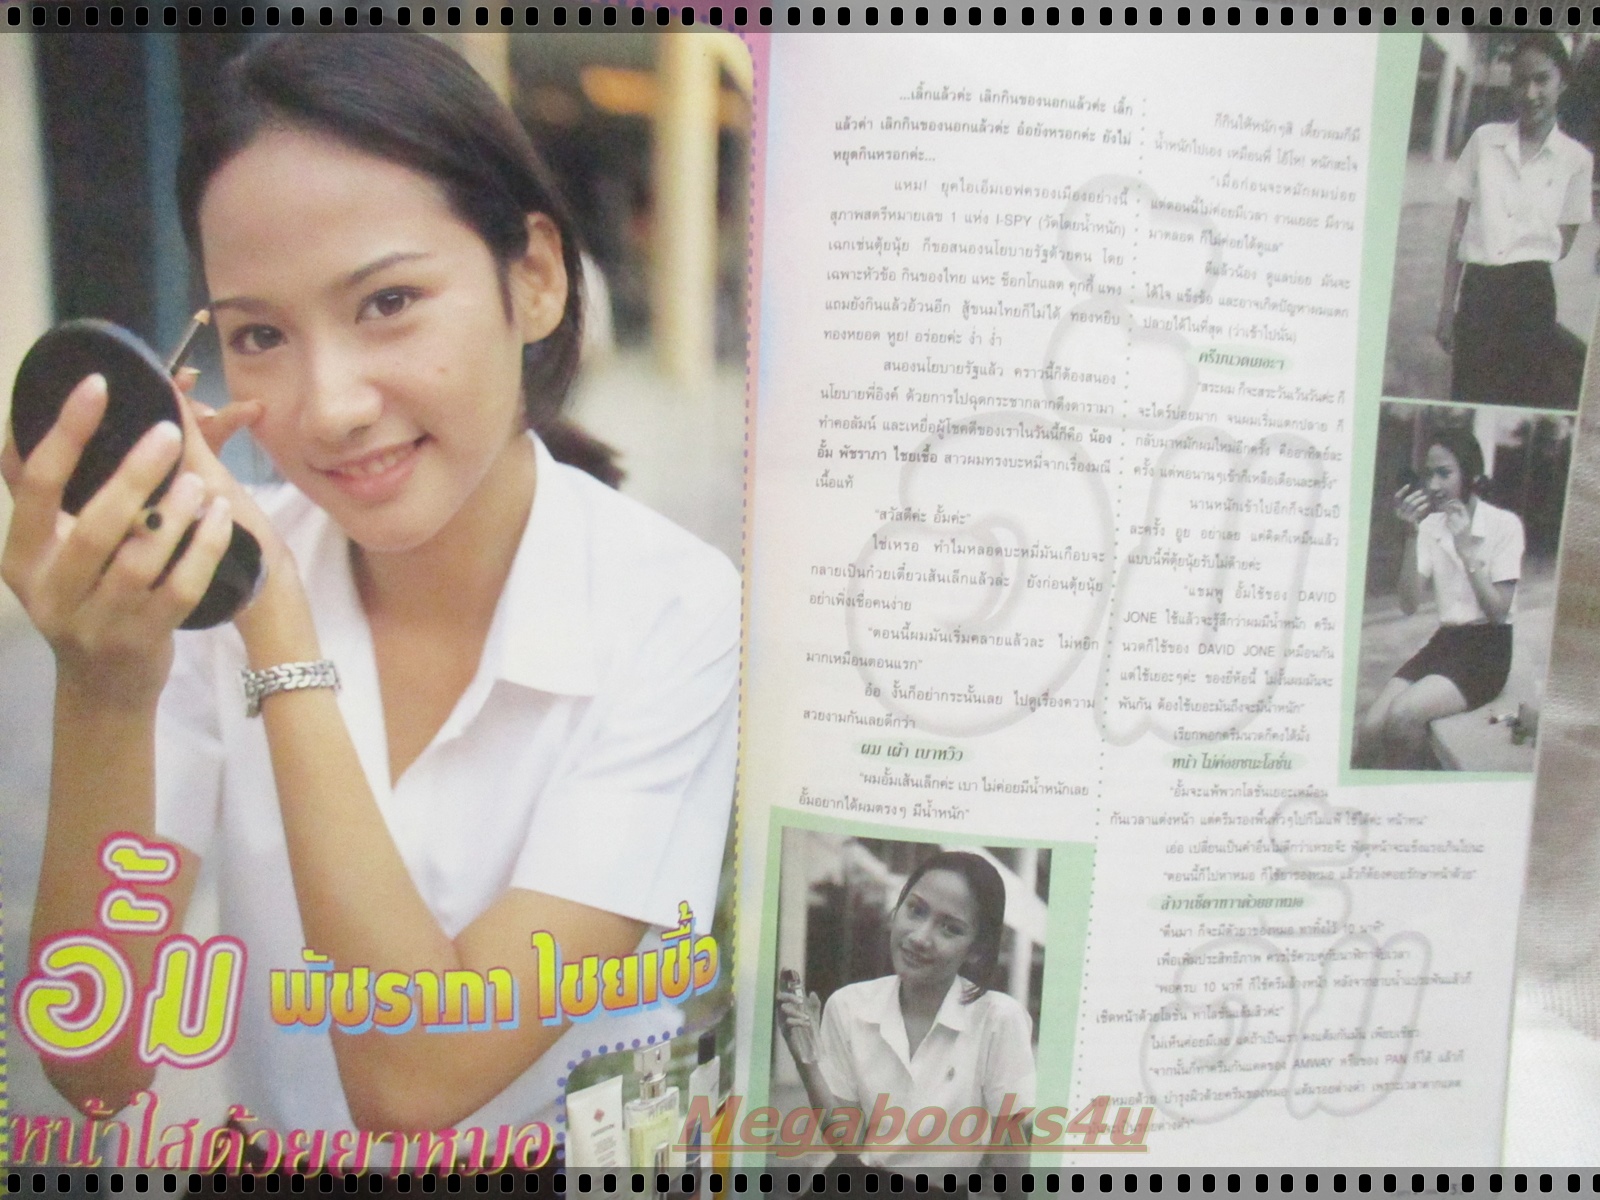 อั้ม
พัชราภา ไชยเชื้อ
หน้าใสด้วยยาหมอ
...เลิ้กแล้วค่ะ เลิกกินของนอกแล้วค่ะ เลิ้ก
แล้วค่า เลิกกินของนอกแล้วค่ะ อ๋อยังหรอกค่ะ ยังไม่
หยุดกินหรอกค่ะ...
แหม! ยุคไอเอ็มเอฟครองเมืองอย่างนี้
สุภาพสตรีหมายเลข 1 แห่ง I-SPY (วัดโดยน้ำหนัก)
เฉกเช่นตุ้ยนุ้ย ก็ขอสนองนโยบายรัฐด้วยคน โดย
เฉพาะหัวข้อ กินของไทย แหะ ช็อกโกแลต คุกกี้ แพง
แถมยังกินแล้วอ้วนอีก สู้ขนมไทยก็ไม่ได้ ทองหยิบ
ทองหยอด หูย! อร่อยค่ะ ง่ำ ง่ำ
สนองนโยบายรัฐแล้ว คราวนี้ก็ต้องสนอง
นโยบายพี่อิงค์ ด้วยการไปฉุดกระชากลากดึงดารามา
ทำคอลัมน์ และเหยื่อผู้โชคดีของเราในวันนี้ก็คือ น้อง
อั้ม พัชราภา ไชยเชื้อ สาวผมทรงบะหมี่จากเรื่องมณี
เนื้อแท้
"สวัสดีค่ะ อั้มค่ะ"
ใช่เหรอ ทำไมหลอดบะหมี่มันเกือบจะ
กลายเป็นก๋วยเตี๋ยวเส้นเล็กแล้วล่ะ ยังก่อนตุ้ยนุ้ย
อย่าเพิ่งเชื่อคนง่าย
"ตอนนี้ผมมันเริ่มคลายแล้วละ ไม่หยิก
มากเหมือนตอนแรก"
อ๋อ งั้นก็อย่ากระนั้นเลย ไปดูเรื่องความ
สวยงามกันเลยดีกว่า
ผม เผ้า เบาหวิว
"ผมอั้มเส้นเล็กค่ะ เบา ไม่ค่อยมีน้ำหนักเลย
อั้มอยากได้ผมตรงๆ มีน้ำหนัก"
ก็กินได้หนักๆสิ เดี๋ยวผมก็มี
น้ำหนักไปเอง เหมือนพี่ โอ้โห! หนักสะใจ
"เมื่อก่อนจะหมักผมบ่อย
แต่ตอนนี้ไม่ค่อยมีเวลา งานเยอะ มีงาน
มาตลอด ก็ไม่ค่อยได้ดูแล"
ดีแล้วน้อง ดูแลบ่อย มันจะ
ได้ใจ แข็งข้อ และอาจเกิดปัญหาผมแตก
ปลายได้ในที่สุด (ว่าเข้าไปนั่น)
ครีมนวดเยอะๆ
"สระผม ก็จะสระวันเว้นวันค่ะ ก็
จะไดร์บ่อยมาก จนผมเริ่มแตกปลาย ก็
กลับมาหมักผมใหม่อีกครั้ง คืออาทิตย์ละ
ครั้ง แต่พอนานๆเข้าก็เหลือเดือนละครั้ง"
นานหนักเข้าไปอีกก็จะเป็นปี
ละครั้ง อูย อย่าเลย แค่คิดก็เหม็นแล้ว
แบบนี้พี่ตุ้ยนุ้ยรับไม่ด้ายค่ะ
"แชมพู อั้มใช้ของ DAVID
JONE ใช้แล้วจะรู้สึกว่าผมมีน้ำหนัก ครีม
นวดก็ใช้ของ DAVID JONE เหมือนกัน
แต่ใช้เยอะๆค่ะ ของยี่ห้อนี้ ไม่งั้นผมมันจะ
พันกัน ต้องใช้เยอะมันถึงจะมีน้ำหนัก"
เรียกพอกครีมนวดก็คงได้มั้ง
หน้า ไม่ค่อยชนะโลชั่น
"อั้มจะแพ้พวกโลชั่นเยอะเหมือน
กันเวลาแต่งหน้า แต่ครีมรองพื้นทั่วๆไปก็ไม่แพ้ ใช้ได้ค่ะ หน้าทน"
เอ่อ เปลี่ยนเป็นคำอื่นไม่ดีกว่าเหรอจ๊ะ ฟังดูหน้าจะแข็งแรงเกินไปนะ
"ตอนนี้ก็ไปหาหมอ ก็ใช้ยาของหมอ แล้วก็ต้องคอยรักษาหน้าด้วย"
"ตื่นมา ก็จะมีตัวยาของหมอ ทาทิ้งไว้ 10 นาที"
เพื่อเพิ่มประสิทธิภาพ ควรใช้ควบคู่กับนาฬิกาจับเวลา
"พอครบ 10 นาที ก็ใช้ครีมล้างหน้า หลังจากอาบน้ำแปรงฟันแล้วก็
เช็ดหน้าด้วยโลชั่น
"จากนั้นก็ทาครีมกันแดดของ AMWAY ครีมของ PAN ก็ได้ แล้วก็
Megabooks4u